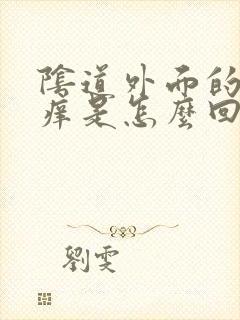 陰道外面的
痒是怎麼回
劉雯